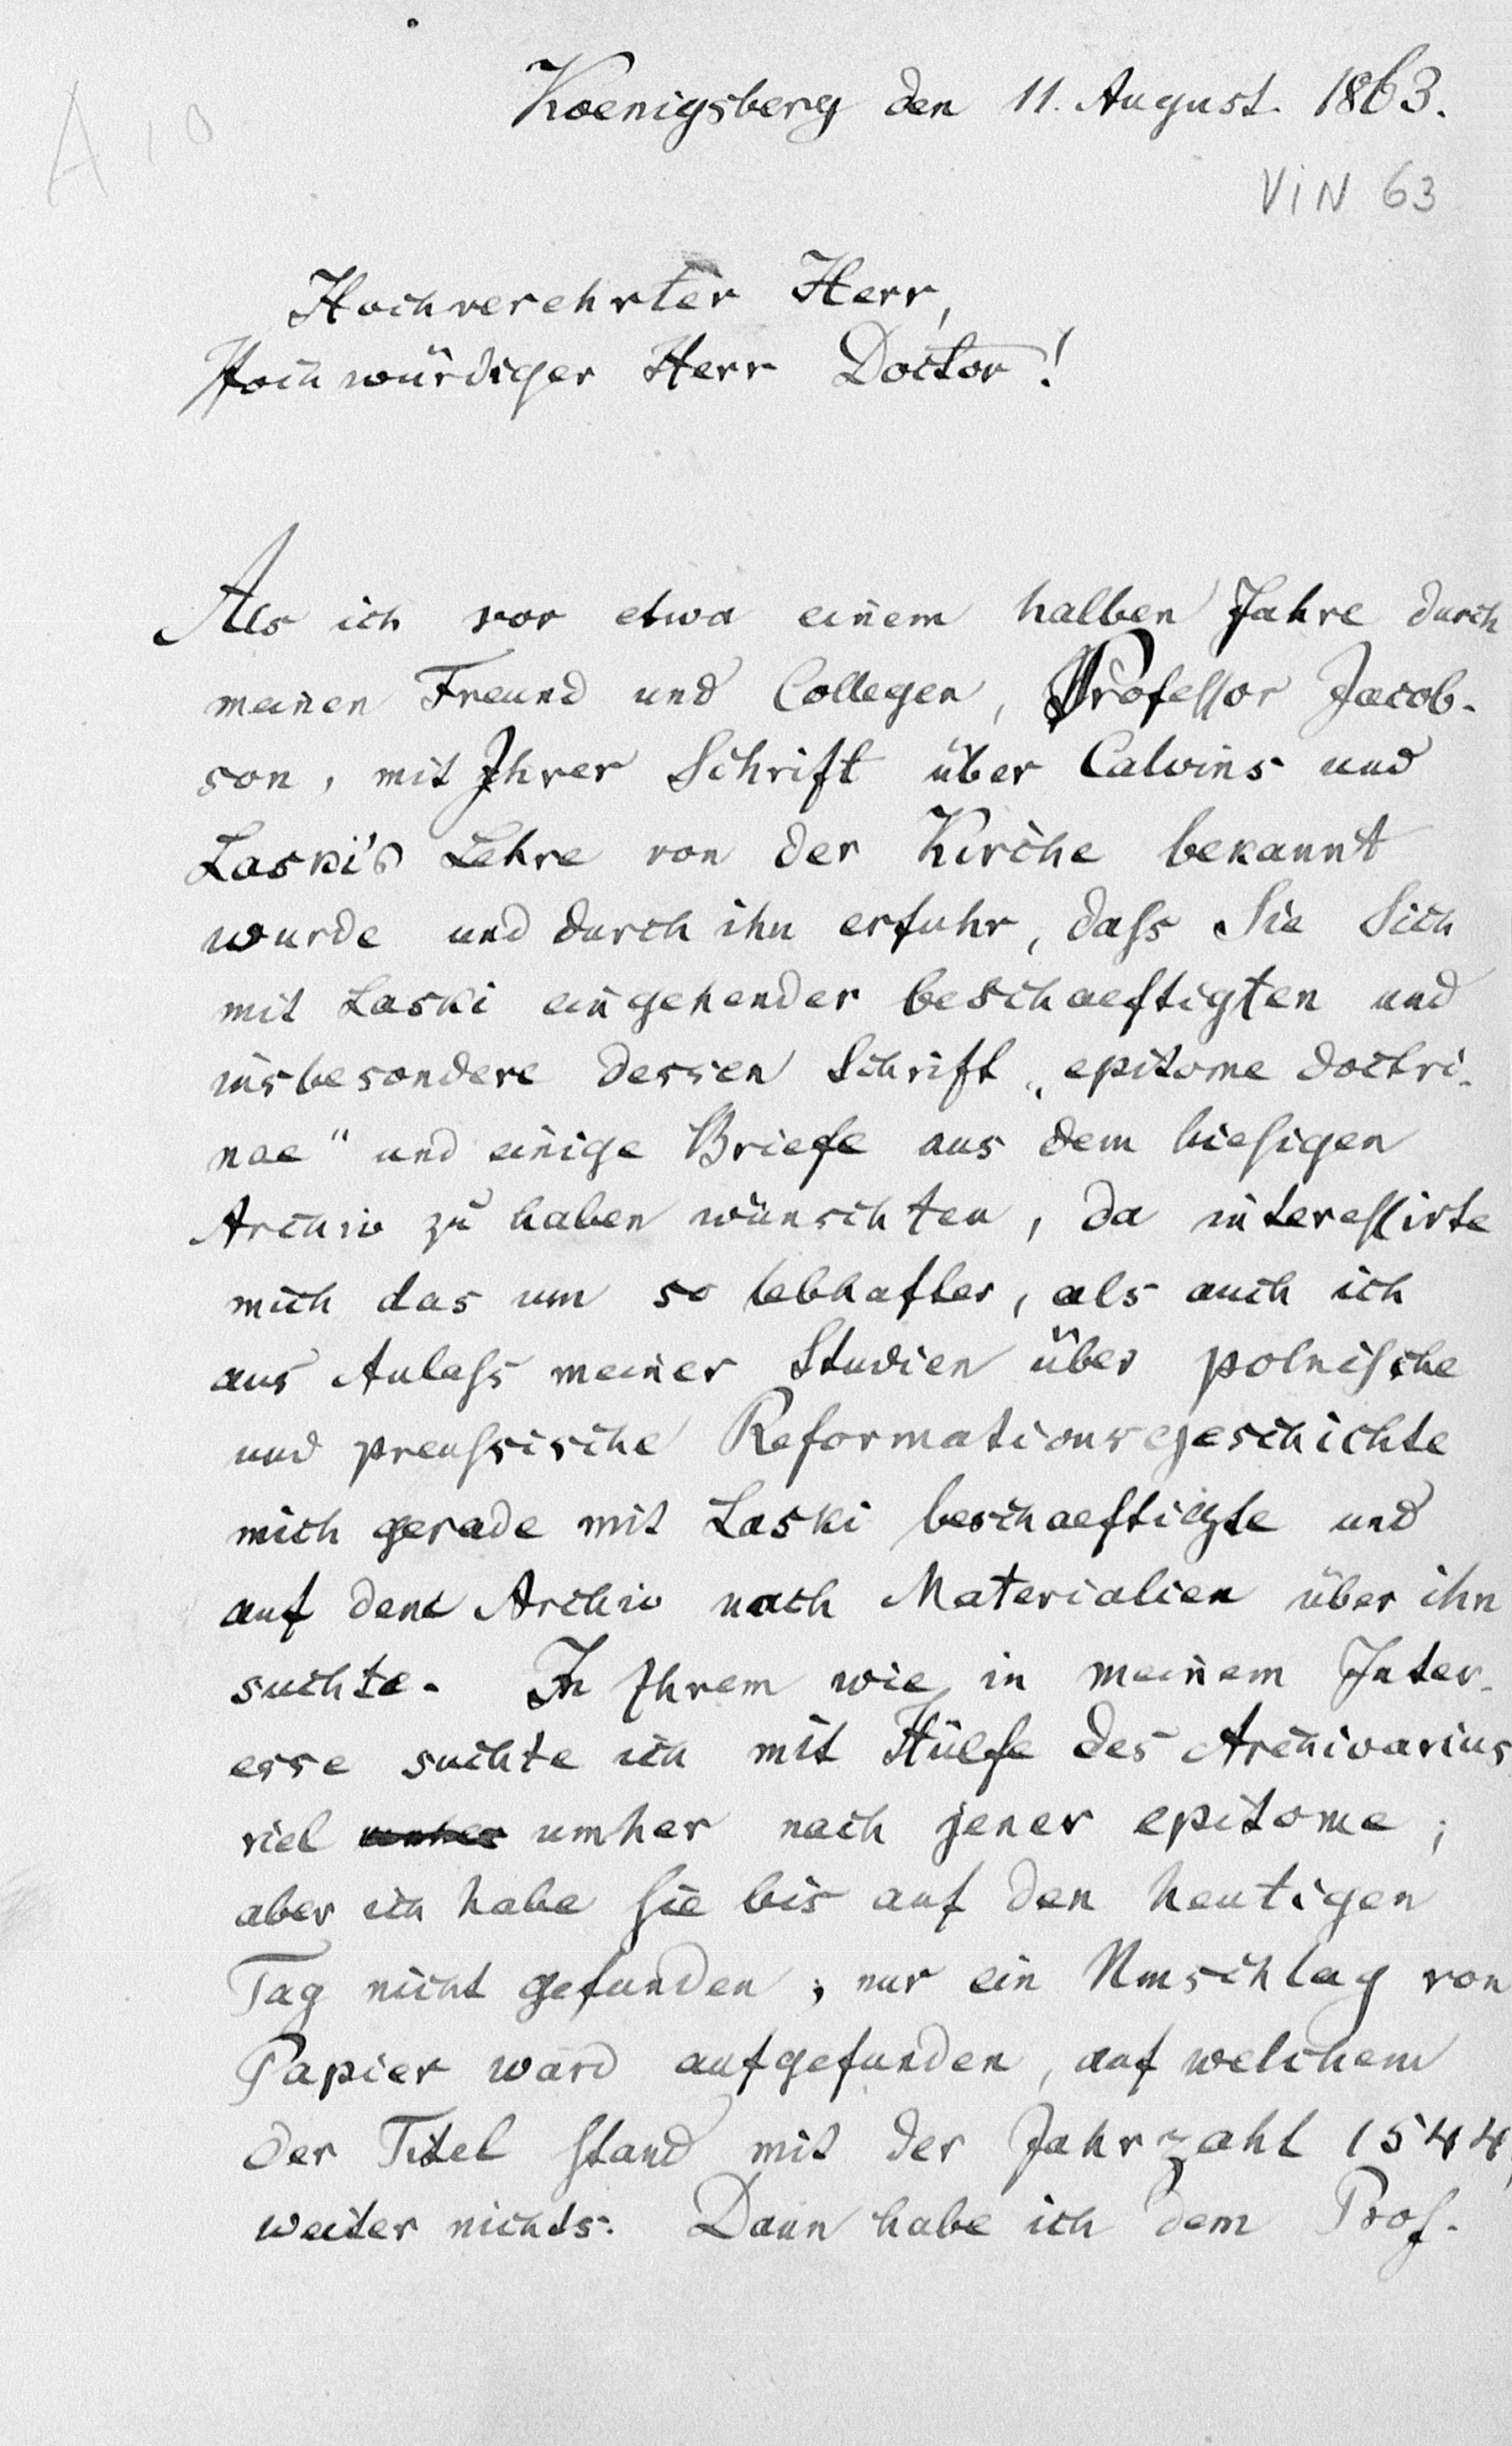 Koenigsberg den 11. August. 1863.
A 10
VIN 63
Hochverehrter Herr,
Hochwürdiger Herr Doctor!
Als ich vor etwa einem halben Jahre durch
meinen Freund und Collegen, Professor Jacob-
son, mit Ihrer Schrift über Calvins und
Laski's Lehre von der Kirche bekannt
wurde und durch ihn erfuhr, dass Sie Sich
mit Laski eingehender beschaeftigten und
insbesondere dessen Schrift „epitome doctri-
nae" und einige Briefe aus dem hiesigen
Archiv zu haben wünschten, da interessirte
mich das um so lebhafter, als auch ich
aus Anlass meiner Studien über polnische
und preussische Reformationsgeschichte
mich gerade mit Laski beschaeftigte und
auf dem Archiv nach Materialien über ihn
suchte. In Ihrem wie in meinem Inter-
esse suchte ich mit Hülfe des Archivarius
viel umher nach jener epitome;
aber ich habe sie bis auf den heutigen
Tag nicht gefunden; nur ein Umschlag von
Papier ward aufgefunden, auf welchem
der Titel stand mit der Jahrzahl 1544,
weiter nichts. Dann habe ich dem Prof.